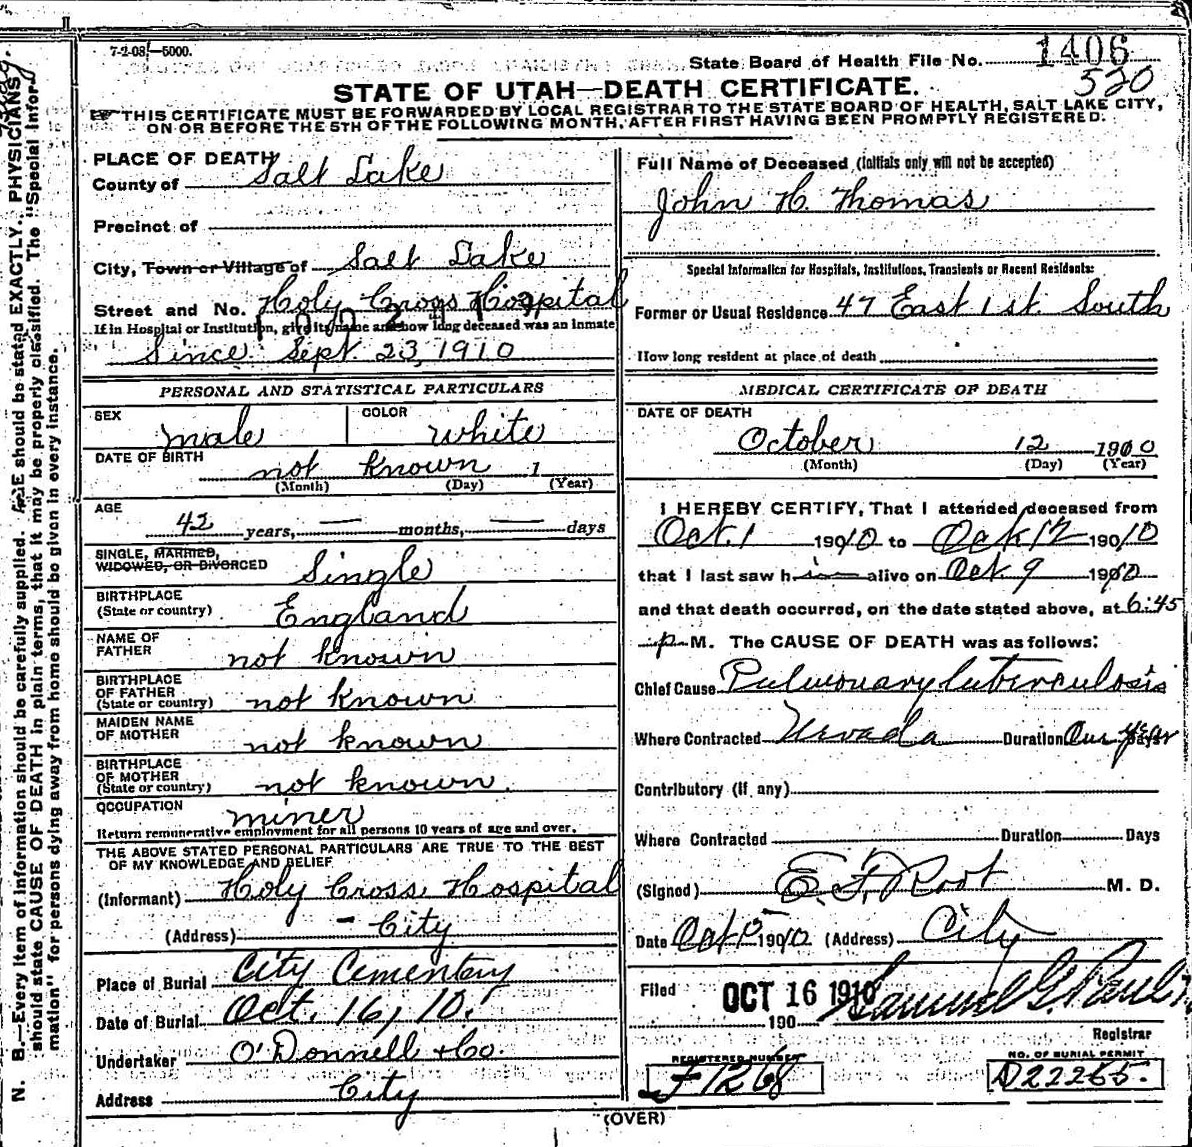 7-2-08—5000.
State Board of Health File No. 1406
520
STATE OF UTAH—DEATH CERTIFICATE.
THIS CERTIFICATE MUST BE FORWARDED BY LOCAL REGISTRAR TO THE STATE BOARD OF HEALTH, SALT LAKE CITY,
ON OR BEFORE THE 5TH OF THE FOLLOWING MONTH, AFTER FIRST HAVING BEEN PROMPTLY REGISTERED.
PLACE OF DEATH
County of Salt Lake
Precinct of
City, Town or Village of Salt Lake
Street and No. Holy Cross Hospital
If in Hospital or Institution, give its name and how long deceased was an inmate
Since Sept. 23, 1910
PERSONAL AND STATISTICAL PARTICULARS
SEX male COLOR white
DATE OF BIRTH not known 1
(Month) (Day) (Year)
AGE
42 years, — months, — days
SINGLE, MARRIED,
WIDOWED, OR DIVORCED Single
BIRTHPLACE
(State or country) England
NAME OF
FATHER not known
BIRTHPLACE
OF FATHER
(State or country) not known
MAIDEN NAME
OF MOTHER not known
BIRTHPLACE
OF MOTHER
(State or country) not known
OCCUPATION miner
Return remunerative employment for all persons 10 years of age and over.
THE ABOVE STATED PERSONAL PARTICULARS ARE TRUE TO THE BEST
OF MY KNOWLEDGE AND BELIEF
(Informant) Holy Cross Hospital
(Address) - City
Place of Burial City Cementery
Date of Burial Oct. 16, 10.
Undertaker O'Donnell & Co.
Address City
Full Name of Deceased (Initials only will not be accepted)
John H. Thomas
Special Information for Hospitals, Institutions, Transients or Recent Residents:
Former or Usual Residence 47 East 1st. South
How long resident at place of death
MEDICAL CERTIFICATE OF DEATH
DATE OF DEATH
October 12 1910
(Month) (Day) (Year)
I HEREBY CERTIFY, That I attended deceased from
Oct. 1 19010 to Oct 12 19010
that I last saw him alive on Oct. 9 1910
and that death occurred, on the date stated above, at 6:45
p M. The CAUSE OF DEATH was as follows:
Chief Cause Pulmonary tuberculosis
Where Contracted Nevada Duration One year Days
Contributory (if any)
Where Contracted Duration Days
(Signed) E. F. Root M. D.
Date Oct 15 1910 (Address) City
Filed OCT 16 1910
190 Samuel G. Paul
Registrar
REGISTERED NUMBER
F1268
NO. OF BURIAL PERMIT
D22265.
(OVER)
N. B.—Every item of information should be carefully supplied. AGE should be stated EXACTLY. PHYSICIANS
should state CAUSE OF DEATH in plain terms, that it may be properly classified. The "Special Infor-
mation" for persons dying away from home should be given in every instance.